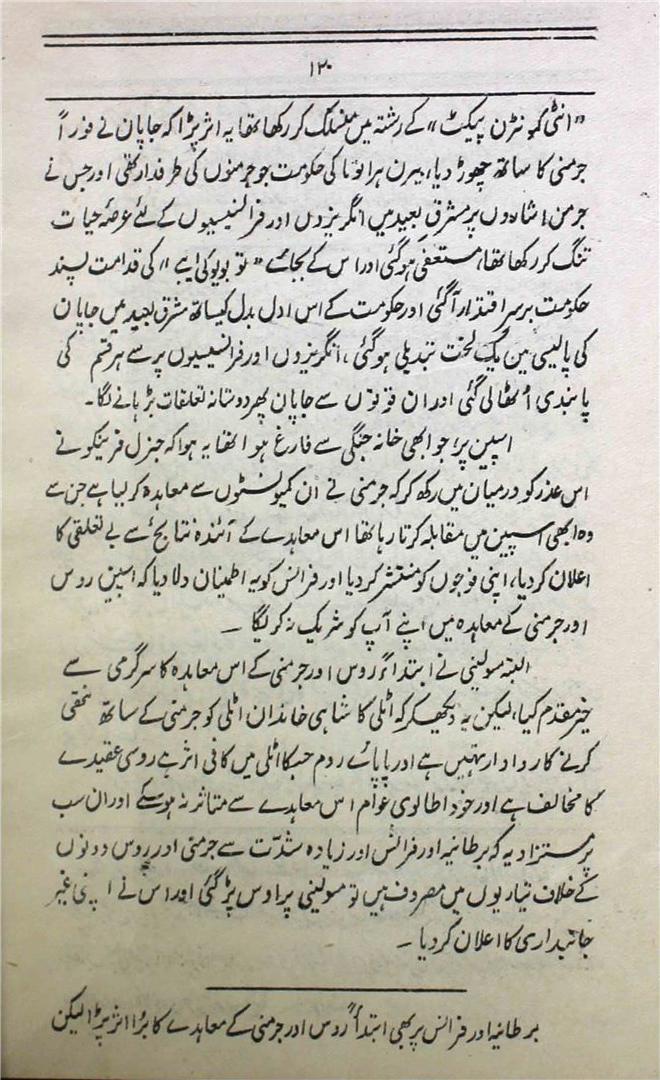 ۱۲۰
"انٹی کمونٹرن پیکٹ" کے رشتہ میں منسلک کر رکھا تھا یہ اثر پڑا کہ جاپان نے فوراً
جرمنی کا ساتھ چھوڑ دیا، بیرن ہرانوما کی حکومت جو جرمنوں کی طرفدار تھی اور جس نے
جرمن اشاروں پر مشرق بعید میں انگریزوں اور فرانسیسیوں کے لئے عرصۂ حیات
تنگ کر رکھا تھا، مستعفی ہو گئی اور اس کے بجائے "نوبویوکی ایبے" کی قدامت پسند
حکومت برسراقتدار آگئی اور حکومت کے اس ادل بدل کیساتھ مشرق بعید میں جاپان
کی پالیسی میں یک لخت تبدیلی ہو گئی، انگریزوں اور فرانسیسیوں پر سے ہر قسم کی
پابندی اُٹھالی گئی اور ان قوموں سے جاپان پھر دوستانہ تعلقات بڑہانے لگا۔
اسپین پر جو ابھی خانہ جنگی سے فارغ ہوا تھا یہ ہوا کہ جنرل فرینکو نے
اس عذر کو درمیان میں رکھ کر کہ جرمنی نے ان کمیونسٹوں سے معاہدہ کر لیا ہے جن سے
وہ ابھی اسپین میں مقابلہ کرتا رہا تھا اس معاہدے کے آئندہ نتایج سے بے تعلقی کا
اعلان کر دیا، اپنی فوجوں کو منتشر کر دیا اور فرانس کو یہ اطمینان دلا دیا کہ اسپین روس
اور جرمنی کے معاہدہ میں اپنے آپ کو شریک نہ کریگا۔
البتہ مسولینی نے ابتداءً روس اور جرمنی کے اس معاہدہ کا سرگرمی سے
خیر مقدم کیا، لیکن یہ دیکھکر کہ اٹلی کا شاہی خاندان اٹلی کو جرمنی کے ساتھ نتھی
کرنے کا روادار نہیں ہے اور پاپائے روم جسکا اٹلی میں کافی اثر ہے روسی عقیدے
کا مخالف ہے اور خود اطالوی عوام اس معاہدے سے متاثر نہ ہو سکے اور ان سب
پر مستزاد یہ کہ برطانیہ اور فرانس اور زیادہ شدّت سے جرمنی اور روس دونوں
کے خلاف تیاریوں میں مصروف ہیں تو مسولینی پر اوس پڑ گئی اور اس نے اپنی غیر
جانبداری کا اعلان کر دیا۔
برطانیہ اور فرانس پر بھی ابتداً روس اور جرمنی کے معاہدے کا بڑا اثر پڑا لیکن